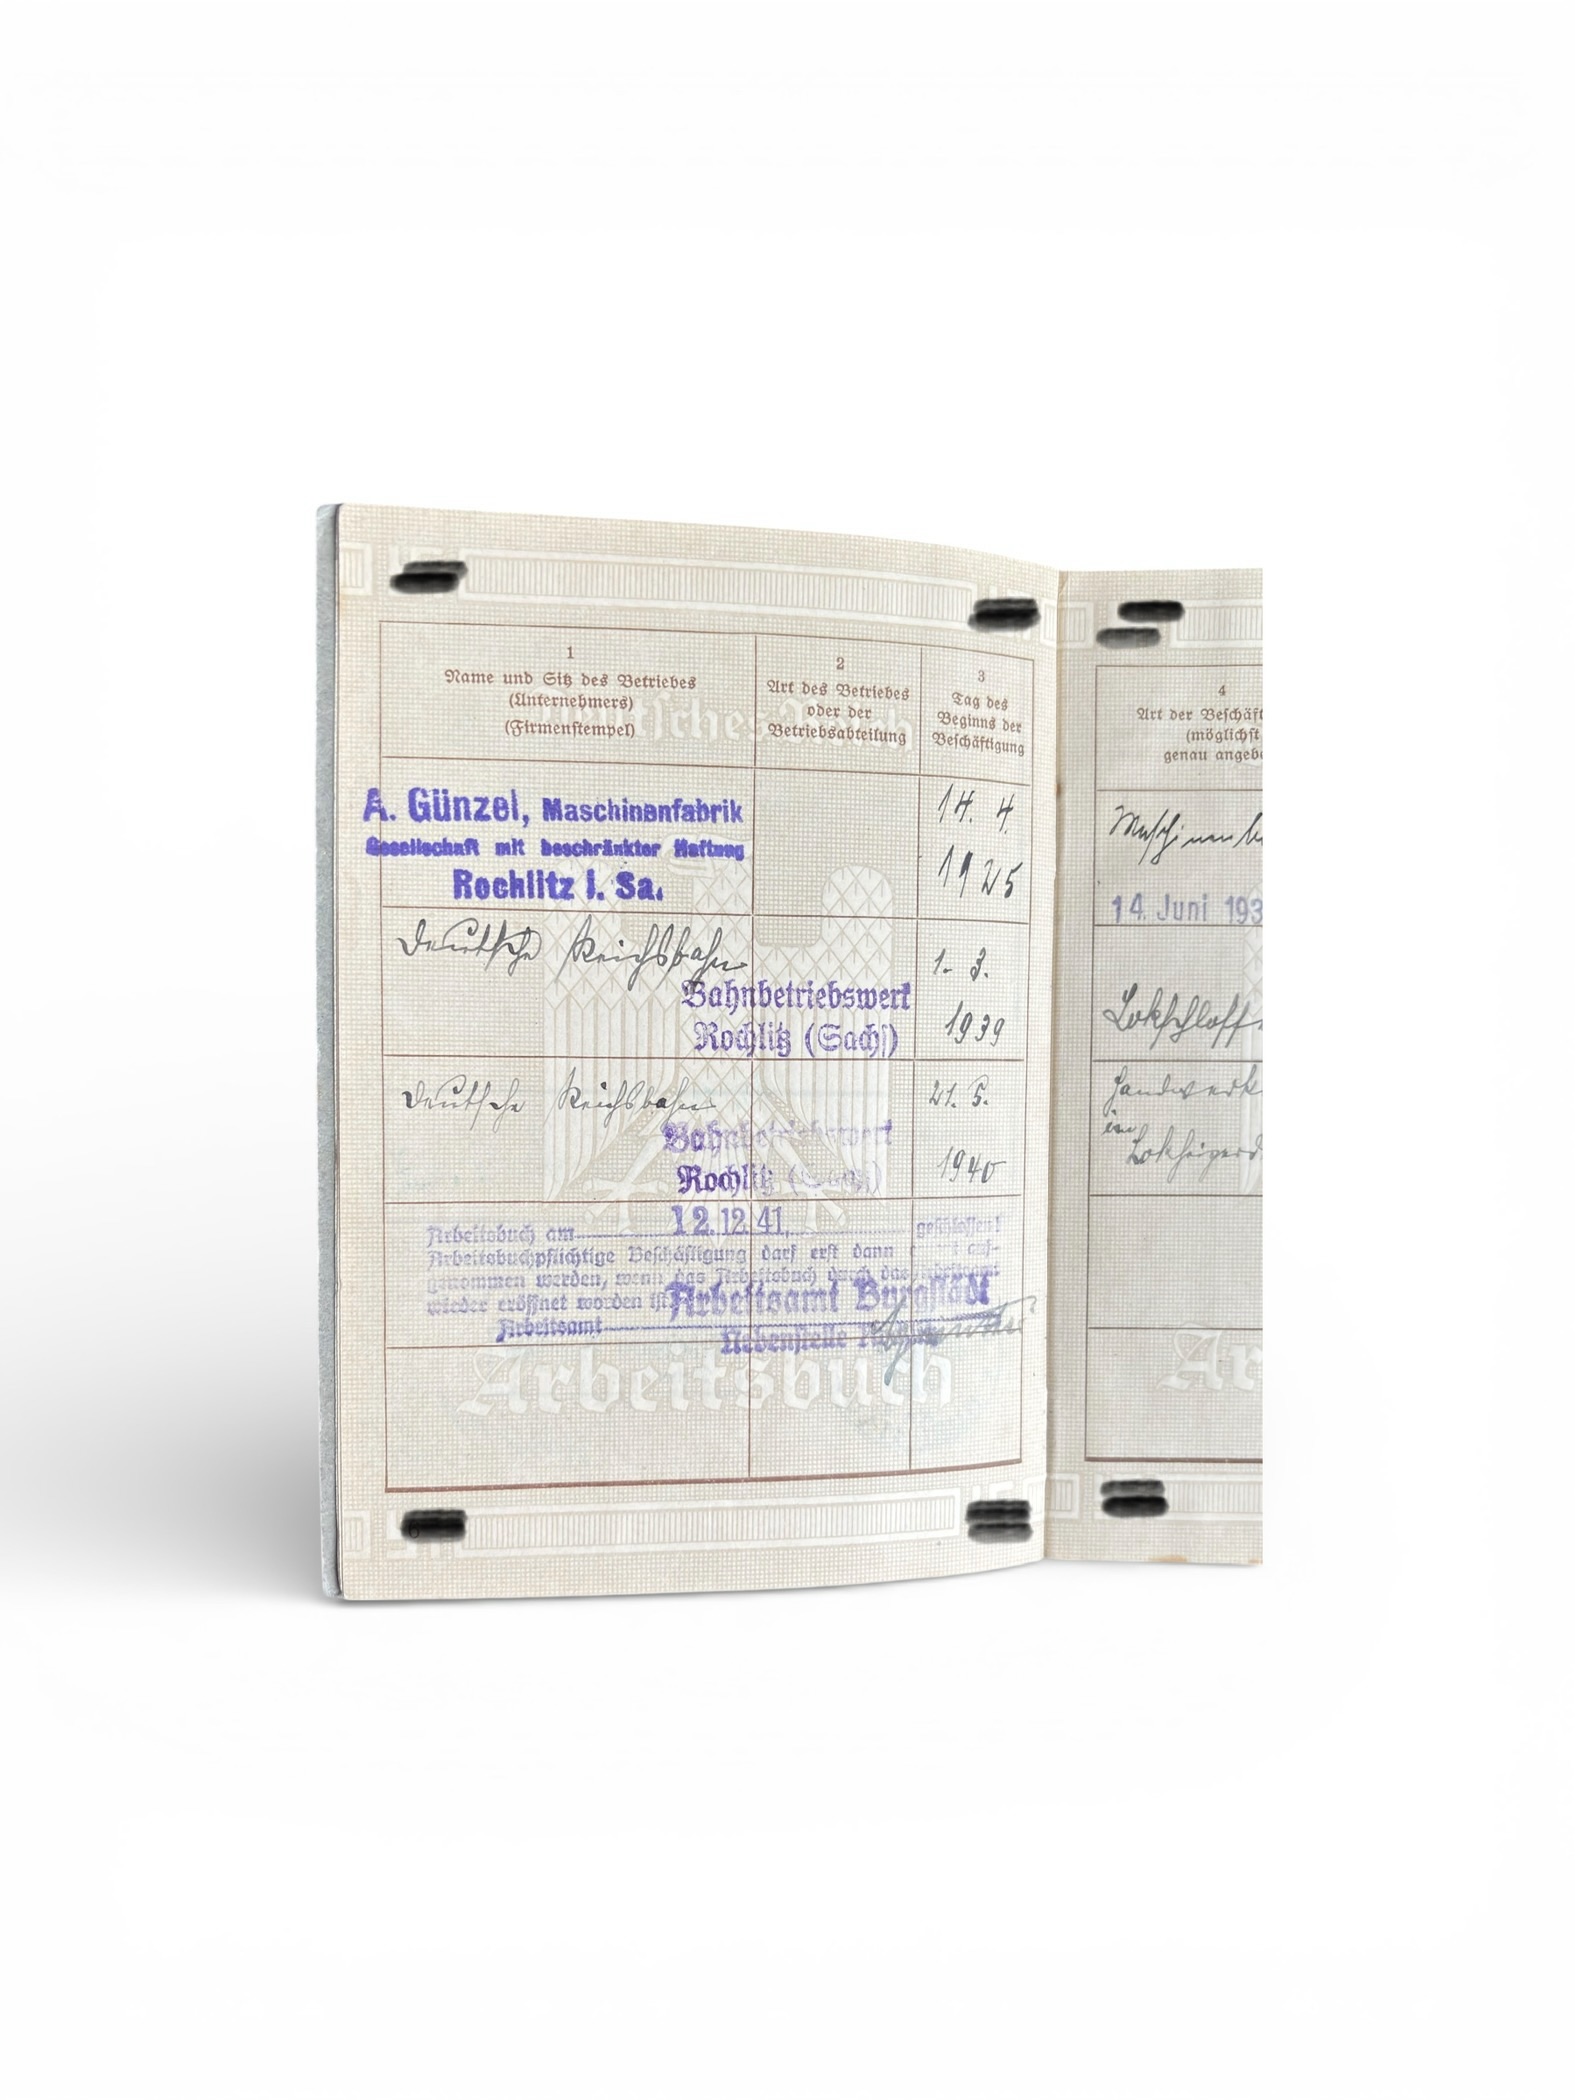 1
Name und Sitz des Betriebes
(Unternehmers)
(Firmenstempel)
2
Art des Betriebes
oder der
Betriebsabteilung
3
Tag des
Beginns der
Beschäftigung
Deutsches Reich
A. Günzel, Maschinenfabrik
Gesellschaft mit beschränkter Haftung
Rochlitz i. Sa.
14. 4.
1925
Deutsche Reichsbahn
Bahnbetriebswerk
Rochlitz (Sachs)
1. 3.
1939
Deutsche Reichsbahn
Bahnbetriebswerk
Rochlitz
21. 5.
1940
12. 12. 41.
Arbeitsbuch am geschlossen!
Arbeitsbuchpflichtige Beschäftigung darf erst dann auf-
genommen werden, wenn das Arbeitsbuch durch das Arbeitsamt
wieder eröffnet worden ist.
Arbeitsamt Burgstädt
Arbeitsamt
Nebenstelle
Arbeitsbuch
6
4
Art der Beschäft
(möglichst
genau angebe
14. Juni 193
Lokschloss
Handwerk
im
Ar